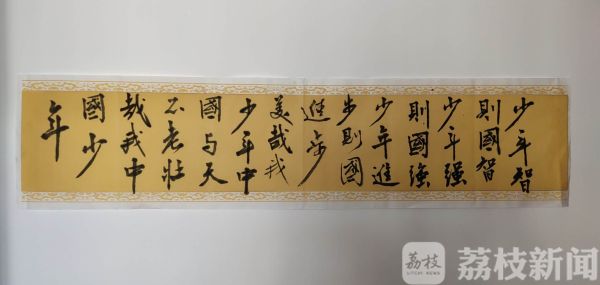 少年智
則國智
少年強
則國強
少年進
步則國
進步
美哉我
少年中
國与天
不老壯
哉我中
國少
年
荔枝
LITCHI NEWS
荔枝新闻